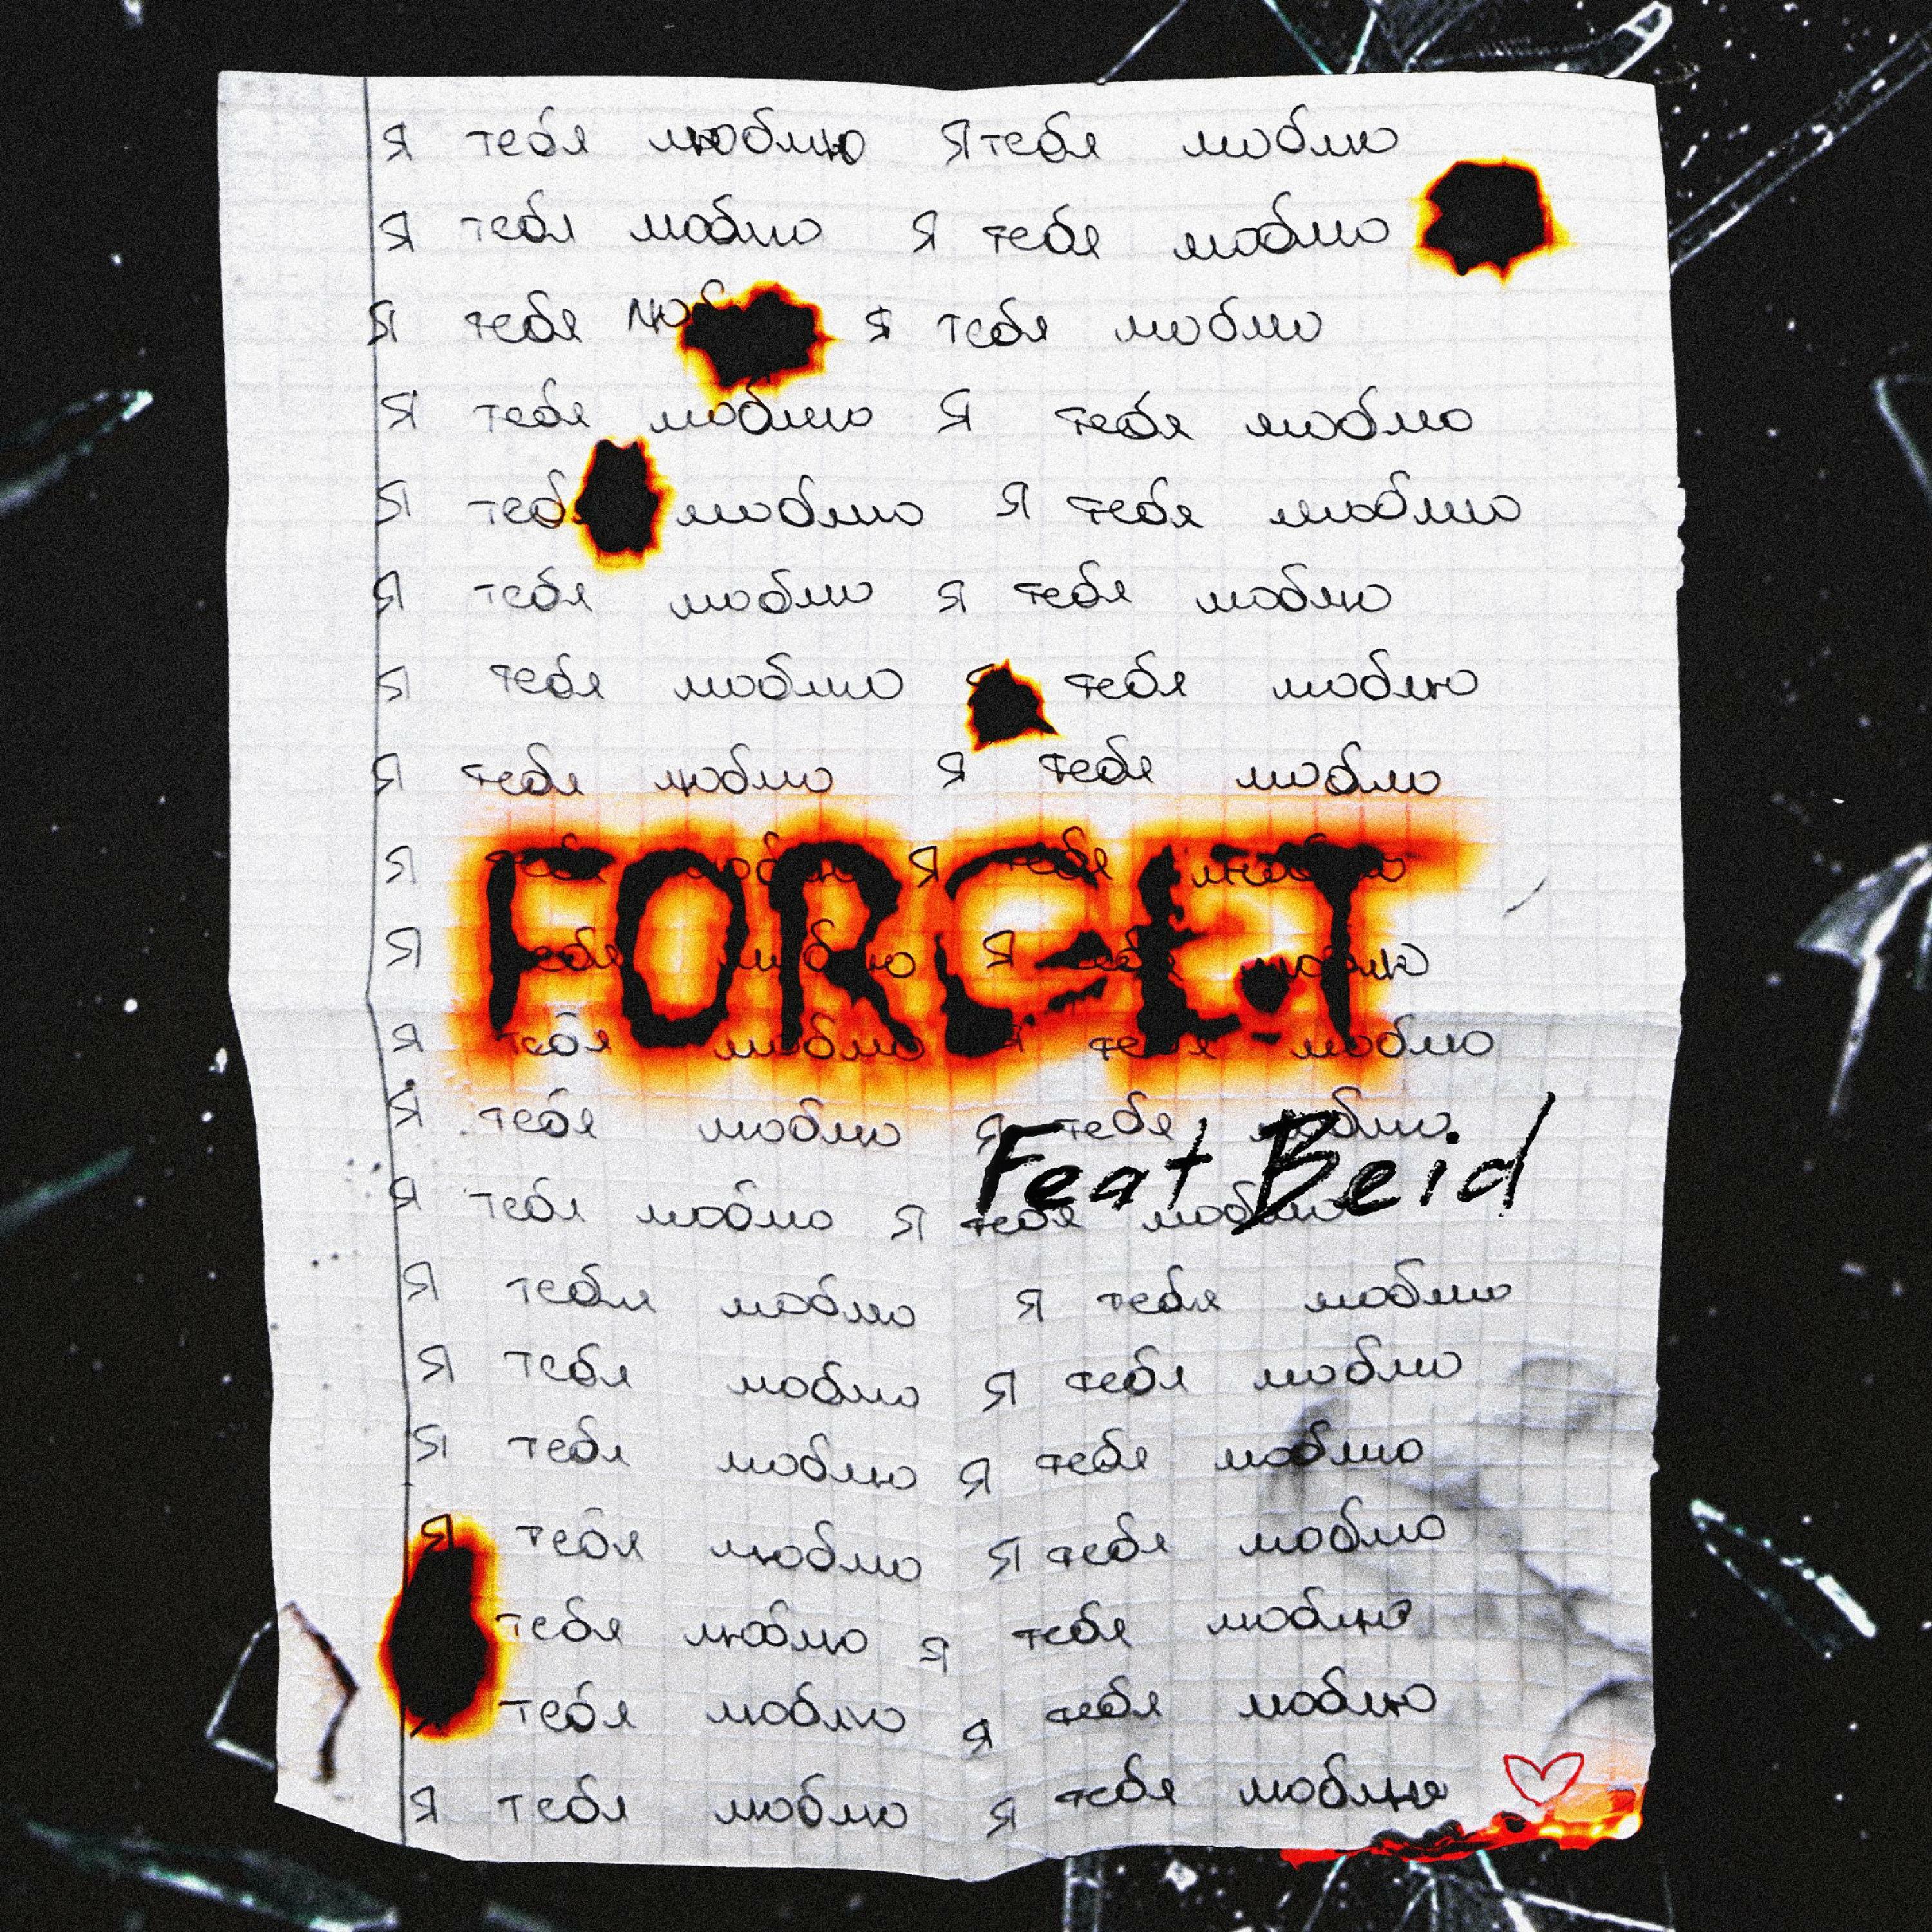 Я тебя люблю Я тебя люблю
Я тебя люблю Я тебя люблю
Я тебя Я тебя люблю
Я тебя люблю Я тебя люблю
Я люблю Я тебя люблю
Я тебя люблю Я тебя люблю
Я тебя люблю тебя люблю
Я тебя люблю Я тебя люблю
FORGET
Я Я тебя люблю
Я тебя люблю Я тебя люблю
Я тебя люблю Я тебя люблю
Я тебя люблю Я тебя люблю
Feat Beid
Я тебя люблю Я тебя люблю
Я тебя люблю Я тебя люблю
Я тебя люблю Я тебя люблю
Я тебя люблю Я тебя люблю
Я тебя люблю Я тебя люблю
тебя люблю Я тебя люблю
тебя люблю Я тебя люблю
Я тебя люблю Я тебя люблю